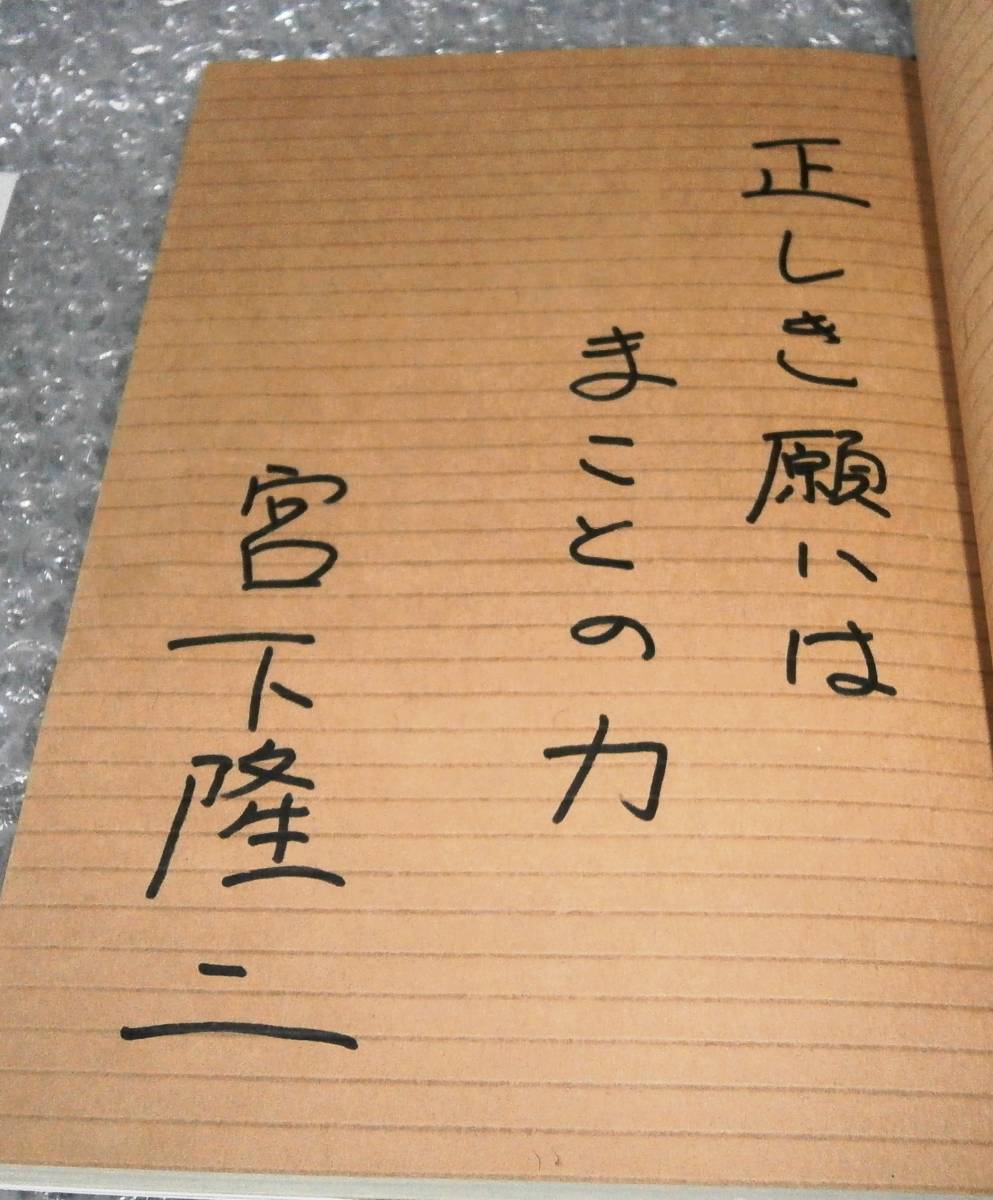 正しき願いは
まことの力
宮下隆二